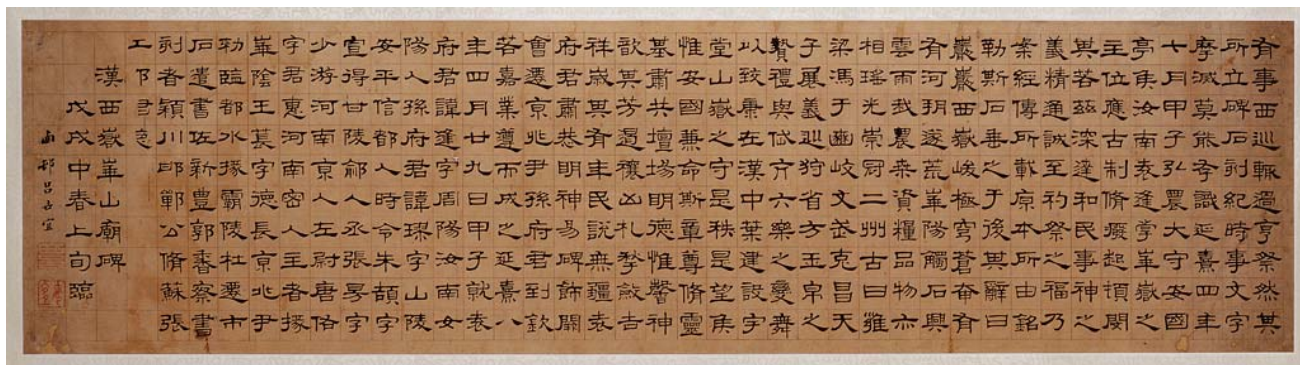 有事西巡輒過亨祭然其
所立碑石刻紀時事文字
摩滅莫能存識延熹四年
七月甲子弘農大守安國
亭侯汝南袁逢掌華嶽之
主位應古制脩癈起頓閔
其若茲深達和民事神之
義精通誠至礿祭之福乃
案經傳所載原本所由銘
勒斯石垂之于後其辭曰
巖巖西嶽峻極穹蒼奄有
有河朔遂荒華陽觸石興
雲雨我農桑資糧品物亦
相瑤光崇冠二州古曰雍
梁馮于豳岐文武克昌天
子展義巡狩省方玉帛之
贄禮與岱亢六樂之變舞
以致康在漢中葉建設宇
堂山嶽之守是秩是望侯
惟安國兼命斯章尊脩靈
基肅共壇場明德惟馨神
歆其芳遏禳凶札揫斂吉
祥歲其有年民說無疆袁
府君肅恭明神易碑飾闕
會遷京兆尹孫府君到欽
若嘉業遵而成之延熹八
年四月廿九日甲子就袁
府君諱逢字周陽汝南女
陽人孫府君諱璆字山陵
安平信都人時令朱頡字
宣得甘陵鄃人丞張昉字
少游河南京人左尉唐佑
字君惠河南密人主者掾
華陰王萇字德長京兆尹
勑監都水掾霸陵杜遷市
石遣書佐新豐郭香察書
刻者潁川邯鄲公脩蘇張
工郭君遷
漢西嶽華山廟碑
戊戌中春上旬臨